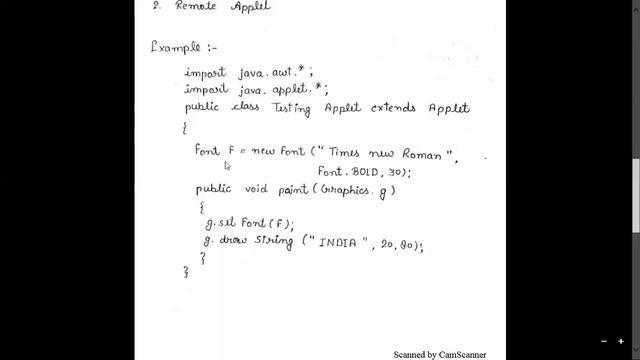 2. Remote Applet
Example :-
import java.awt.*;
import java.applet.*;
public class Testing Applet extends Applet
{
Font F = new Font ("Times new Roman",
Font.BOLD, 30);
public void paint(Graphics.g)
{
g.set Font(F);
g. draw String ("INDIA", 20,80);
}
}
Scanned by CamScanner